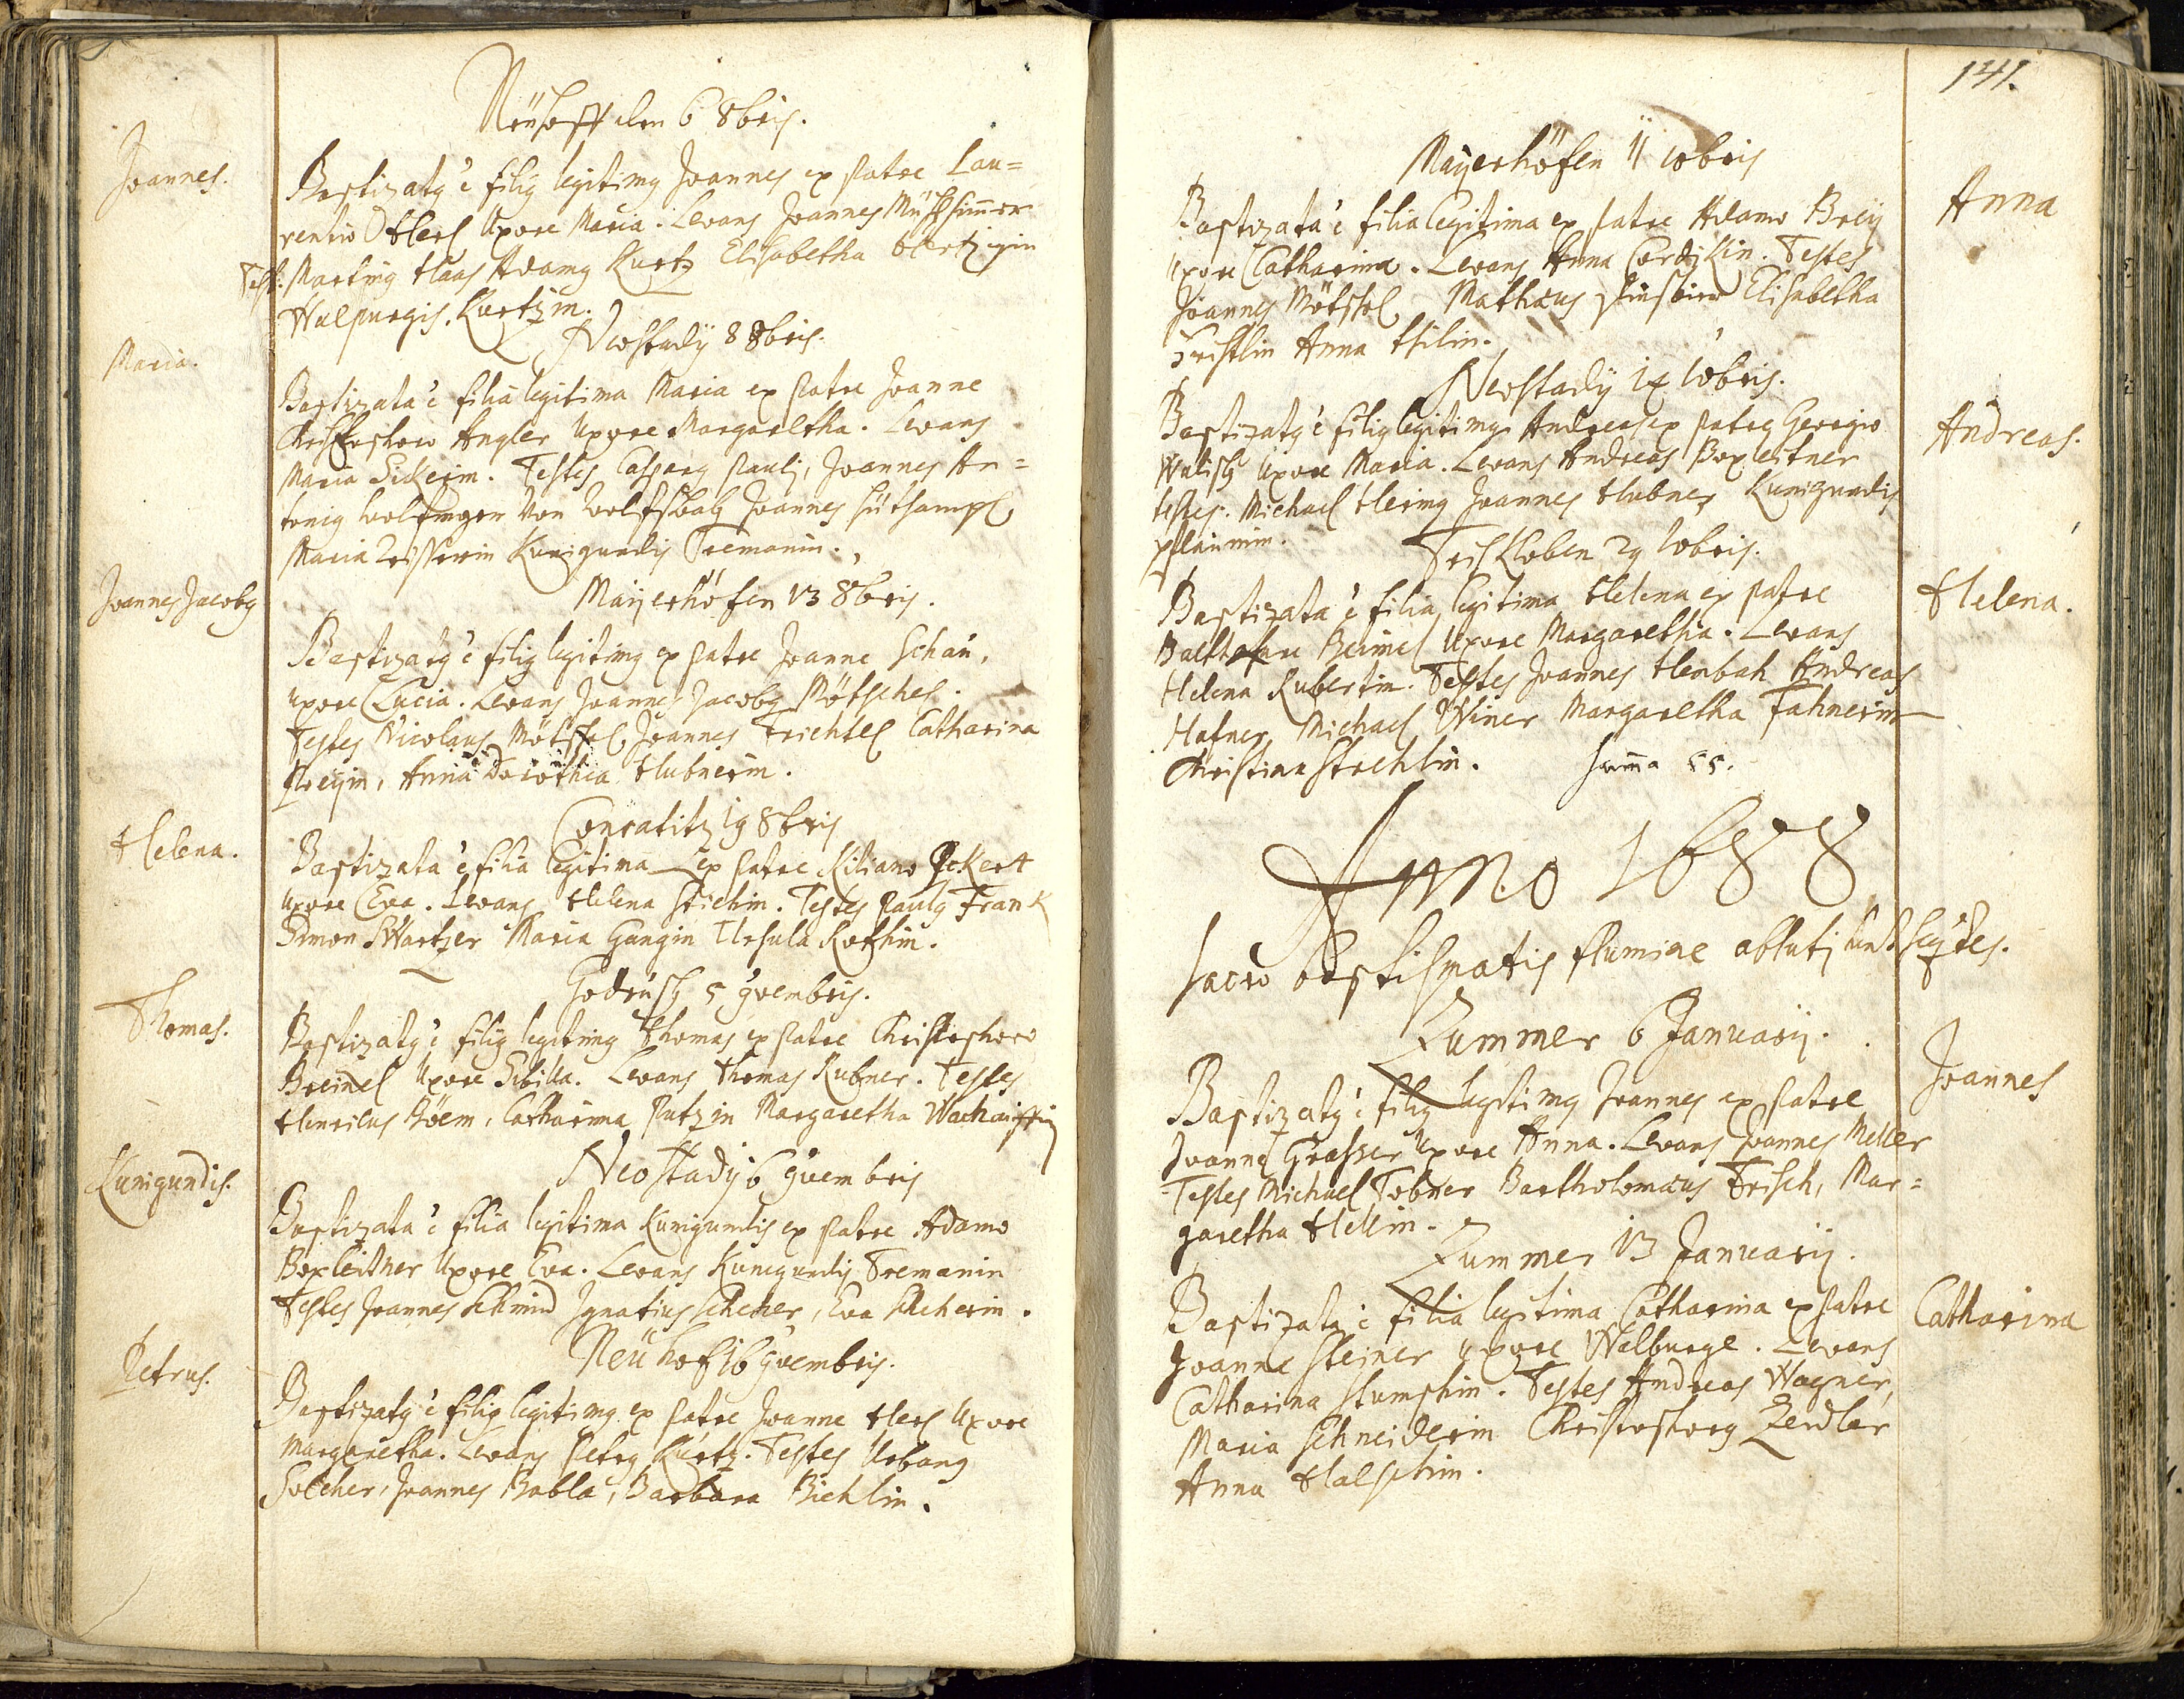 Neühoff den 6 8bris.
Joannes.
Baptizatg ē filig legitimg Joannes ex patre Lau=
rentio Herl Uxore Maria. Levans Joannes
Test: Marting Haas Adamg Kurtz Elisabetha Hertzigin
Walpurgis Kurtzin.
Neostadij 8 8bris.
Maria.
Baptizata ē filia legitima Maria ex patre Joanne
Christophoro Angler Uxore Margaretha. Levans
Maria Sickerin. Testes Casparg Paulj, Joannes An=
tonig Wolfinger von Wolfsbalg Joannes
Maria Kunigundis Tremanin.
Maÿerhöfen 13 8bris.
Joannes Jacobg
Baptizatg ē filig legitimg ex patre Joanne Schau,
uxore Lucia. Levans Joannes Jacobg Mötschel.
Testes Nicolaus Mötschel Joannes Trichtel Catharina
Preyin, Anna Dorothea Hubnerin.
Conratitz 19 8bris
Helena.
Baptizata ē filia legitima ex patre Kiliano Eckert
Uxore Eva. Levans Helena Stichin. Testes Paulg Frank
Simon SWartzer Maria Gangin Ursula Rothin.
Godrusch 5 9vembris.
Thomas.
Baptizatg ē filig legitimg Thomas ex patre Christophoro
Breinel Uxore Sibilla. Levans Thomas Kubner. Testes
Henricus Böem, Catharina Putzin Margaretha
Neostadij 6 9vembris
Kunigundis.
Baptizata ē filia legitima Kunigundis ex patre Adamo
Boxleitner Uxore Eva. Levans Kunigundis Tremanin
Testes Joannes Schmid Ignatius Scherer, Eva Scherin.
Neühof 16 9vembris.
Petrus.
Baptizatg ē filig legitimg ex patre Joanne Herl Uxore
Margaretha. Levans Petrg Kurtz. Testes Urbang
Solcher, Joannes Babla, Barbara Bichlin.
141.
Maÿerhöfen 11 10bris
Anna
Baptizata ē filia legitima ex patre Adamo Breÿ
Uxore Catharina. Levans Anna Testes
Joannes Mötschel Mathæus Elisabetha
Trichtlin Anna
Neostadij 1x 10bris.
Andreas.
Baptizatg ē filig legitimg Andreas ex patre Georgio
Walisch Uxore Maria. Levans Andreas Boxleitner
testes. Michael Hering Joannes Hubner Kunigundis
Pflaumin.
Triskloben 29 10bris.
Helena.
Baptizata ē filia legitima Helena ex patre
Balthasare Breinel Uxore Margaretha. Levans
Helena Rubertin. Testes Joannes Hembah Andreas
Hafner Michael Winer Margaretha Fahnerin
Christina Stoehlin. Suma 55.
Anno 1688
Sacro baptismatis flumine ablutj sunt seqtes.
Zummer 6 Januarij.
Joannes
Baptizatg ē filig legitimg Joannes ex patre
Joanne Grasser Uxore Anna. Levans Joannes Meller
Testes Michael Tobner Bartholomæus Frisch, Mar=
garetha Hellin.
Zummer 13 Januarij.
Catharina
Baptizata ē filia legitima Catharina ex patre
Joanne Steiner uxore Walburge. Levans
Catharina Stumphin. Testes Andreas Wagner,
Maria Schneiderin Christophorg Zendler
Anna Halschin.